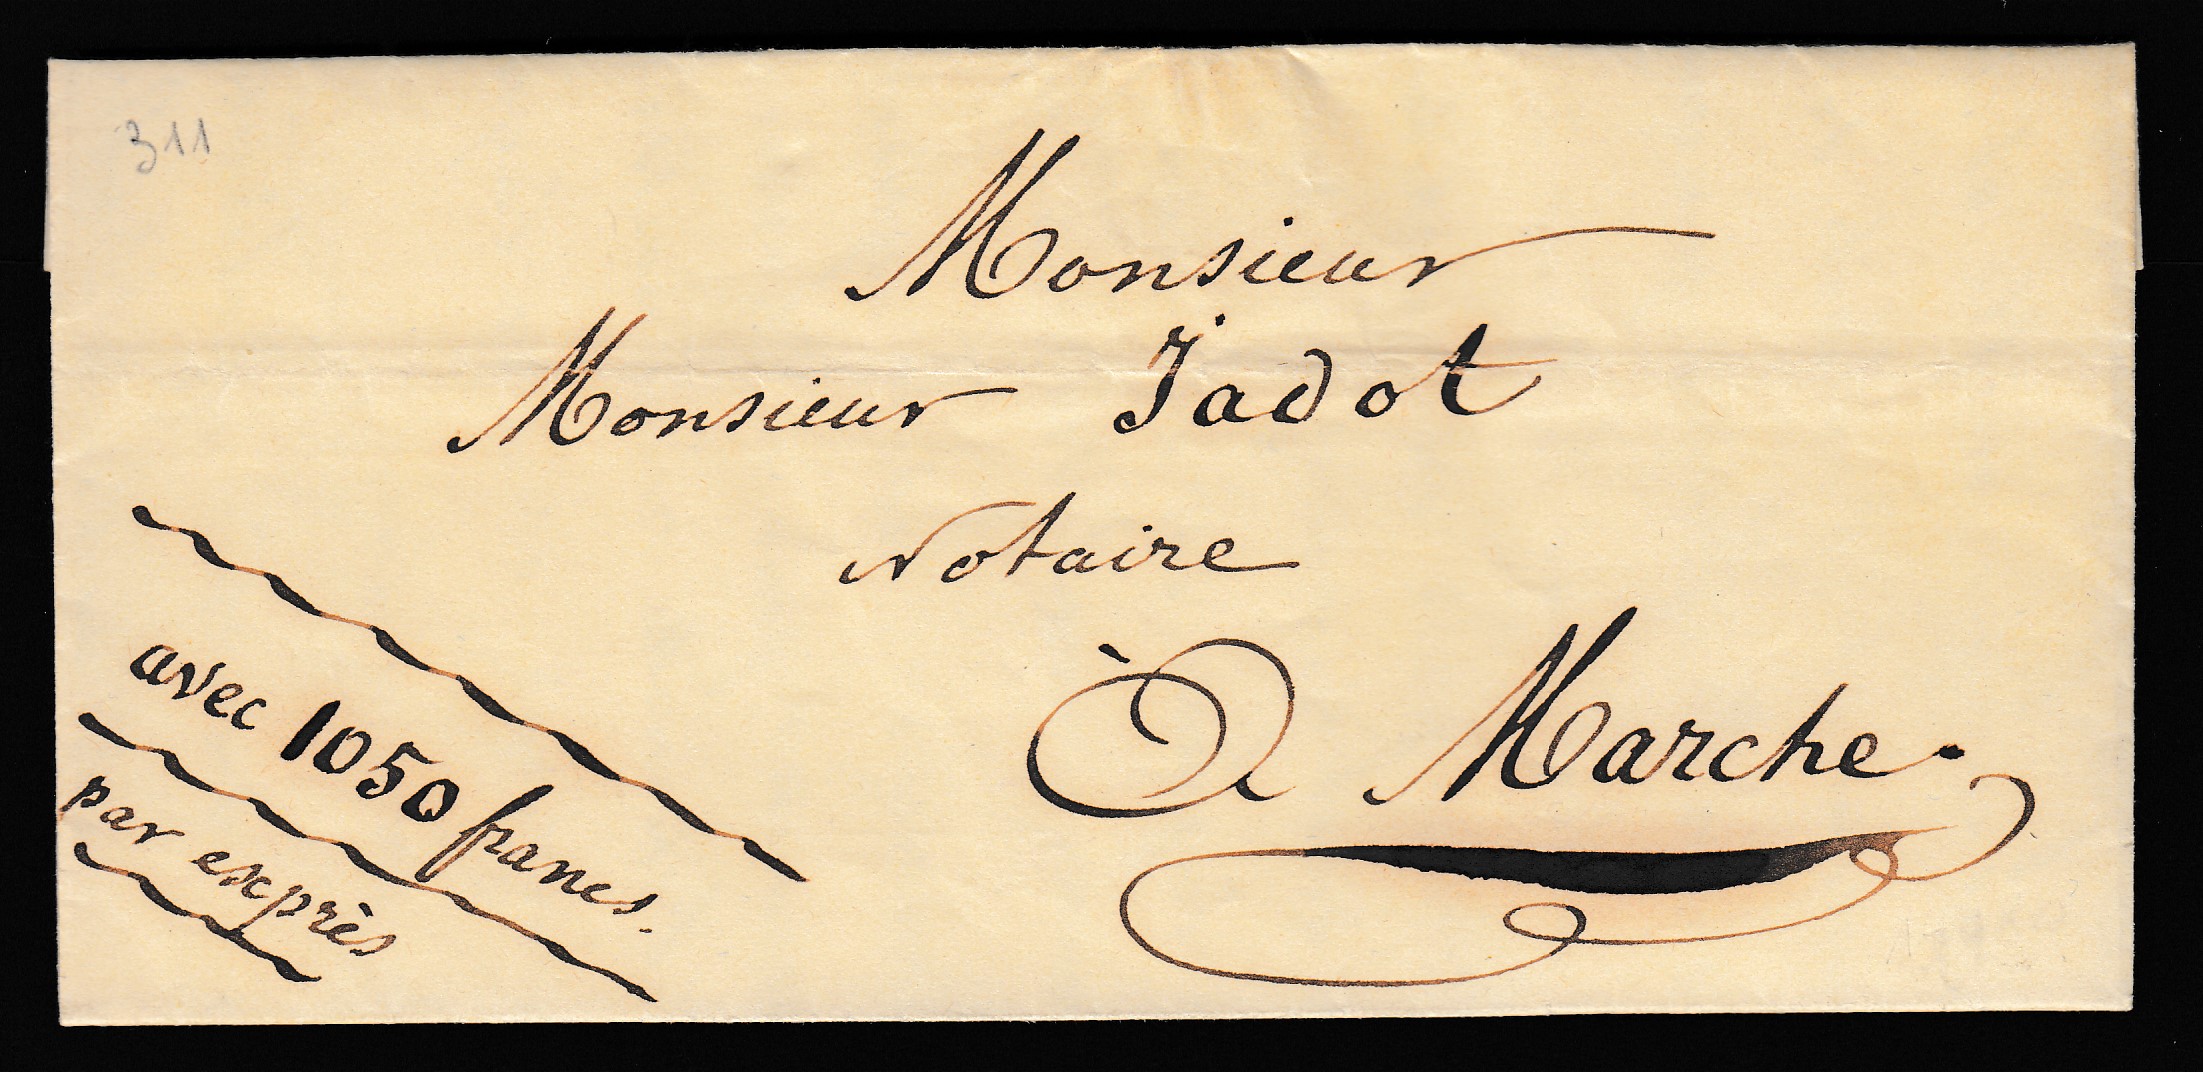 311
Monsieur
Monsieur Jadot
Notaire
À Marche.
avec 1050 francs.
par exprès